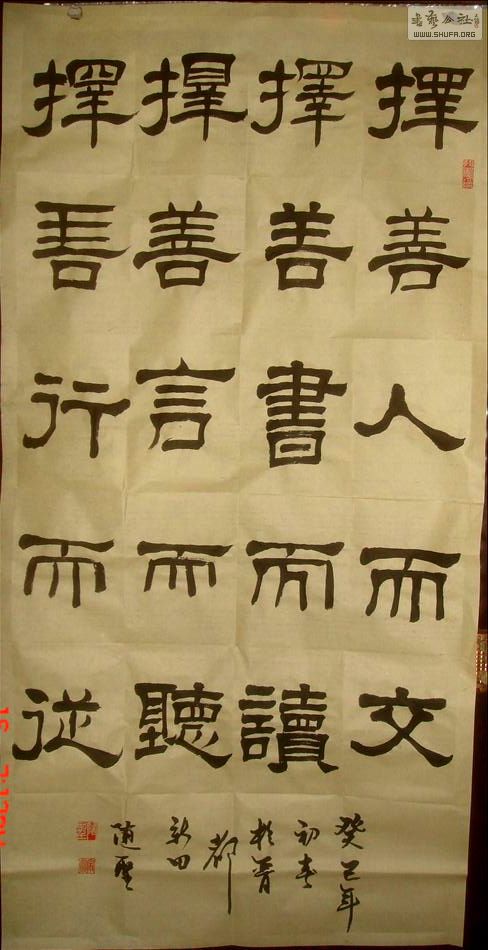 擇善人而交
擇善書而讀
擇善言而聽
擇善行而從
癸巳年
初春
於晉
都
新田
隨聖
書藝公社
WWW.SHUFA.ORG